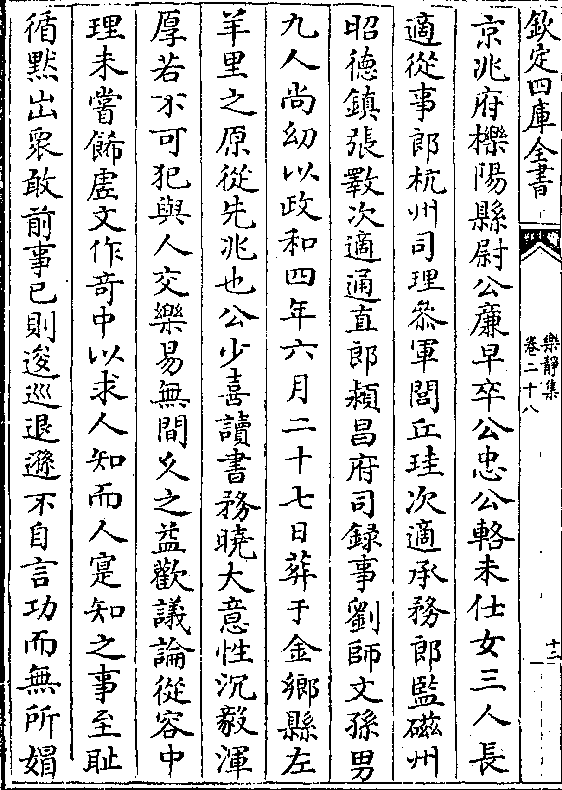 欽定四庫全書
樂靜集
卷二十八
十二
京兆府櫟陽縣尉公廉早卒公忠公輅未仕女三人長
適從事郎杭州司理叅軍閭丘珪次適承務郎監磁州
昭德鎮張斁次適通直郎潁昌府司録事劉師文孫男
九人尚幼以政和四年六月二十七日葬于金鄉縣左
羊里之原從先兆也公少喜讀書務曉大意性沉毅渾
厚若不可犯與人交樂易無間乆之益歡議論從容中
理未嘗餙虛文作竒中以求人知而人寔知之事至耻
循黙出衆敢前事已則逡巡退遜不自言功而無所媢